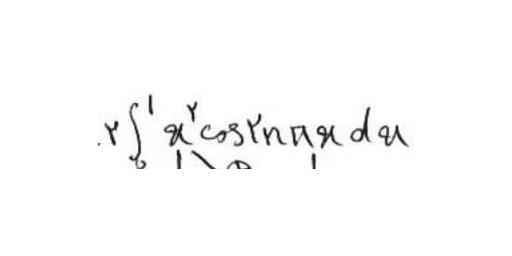 ۲∫₀¹ x^۲ cos ۲nπx dx